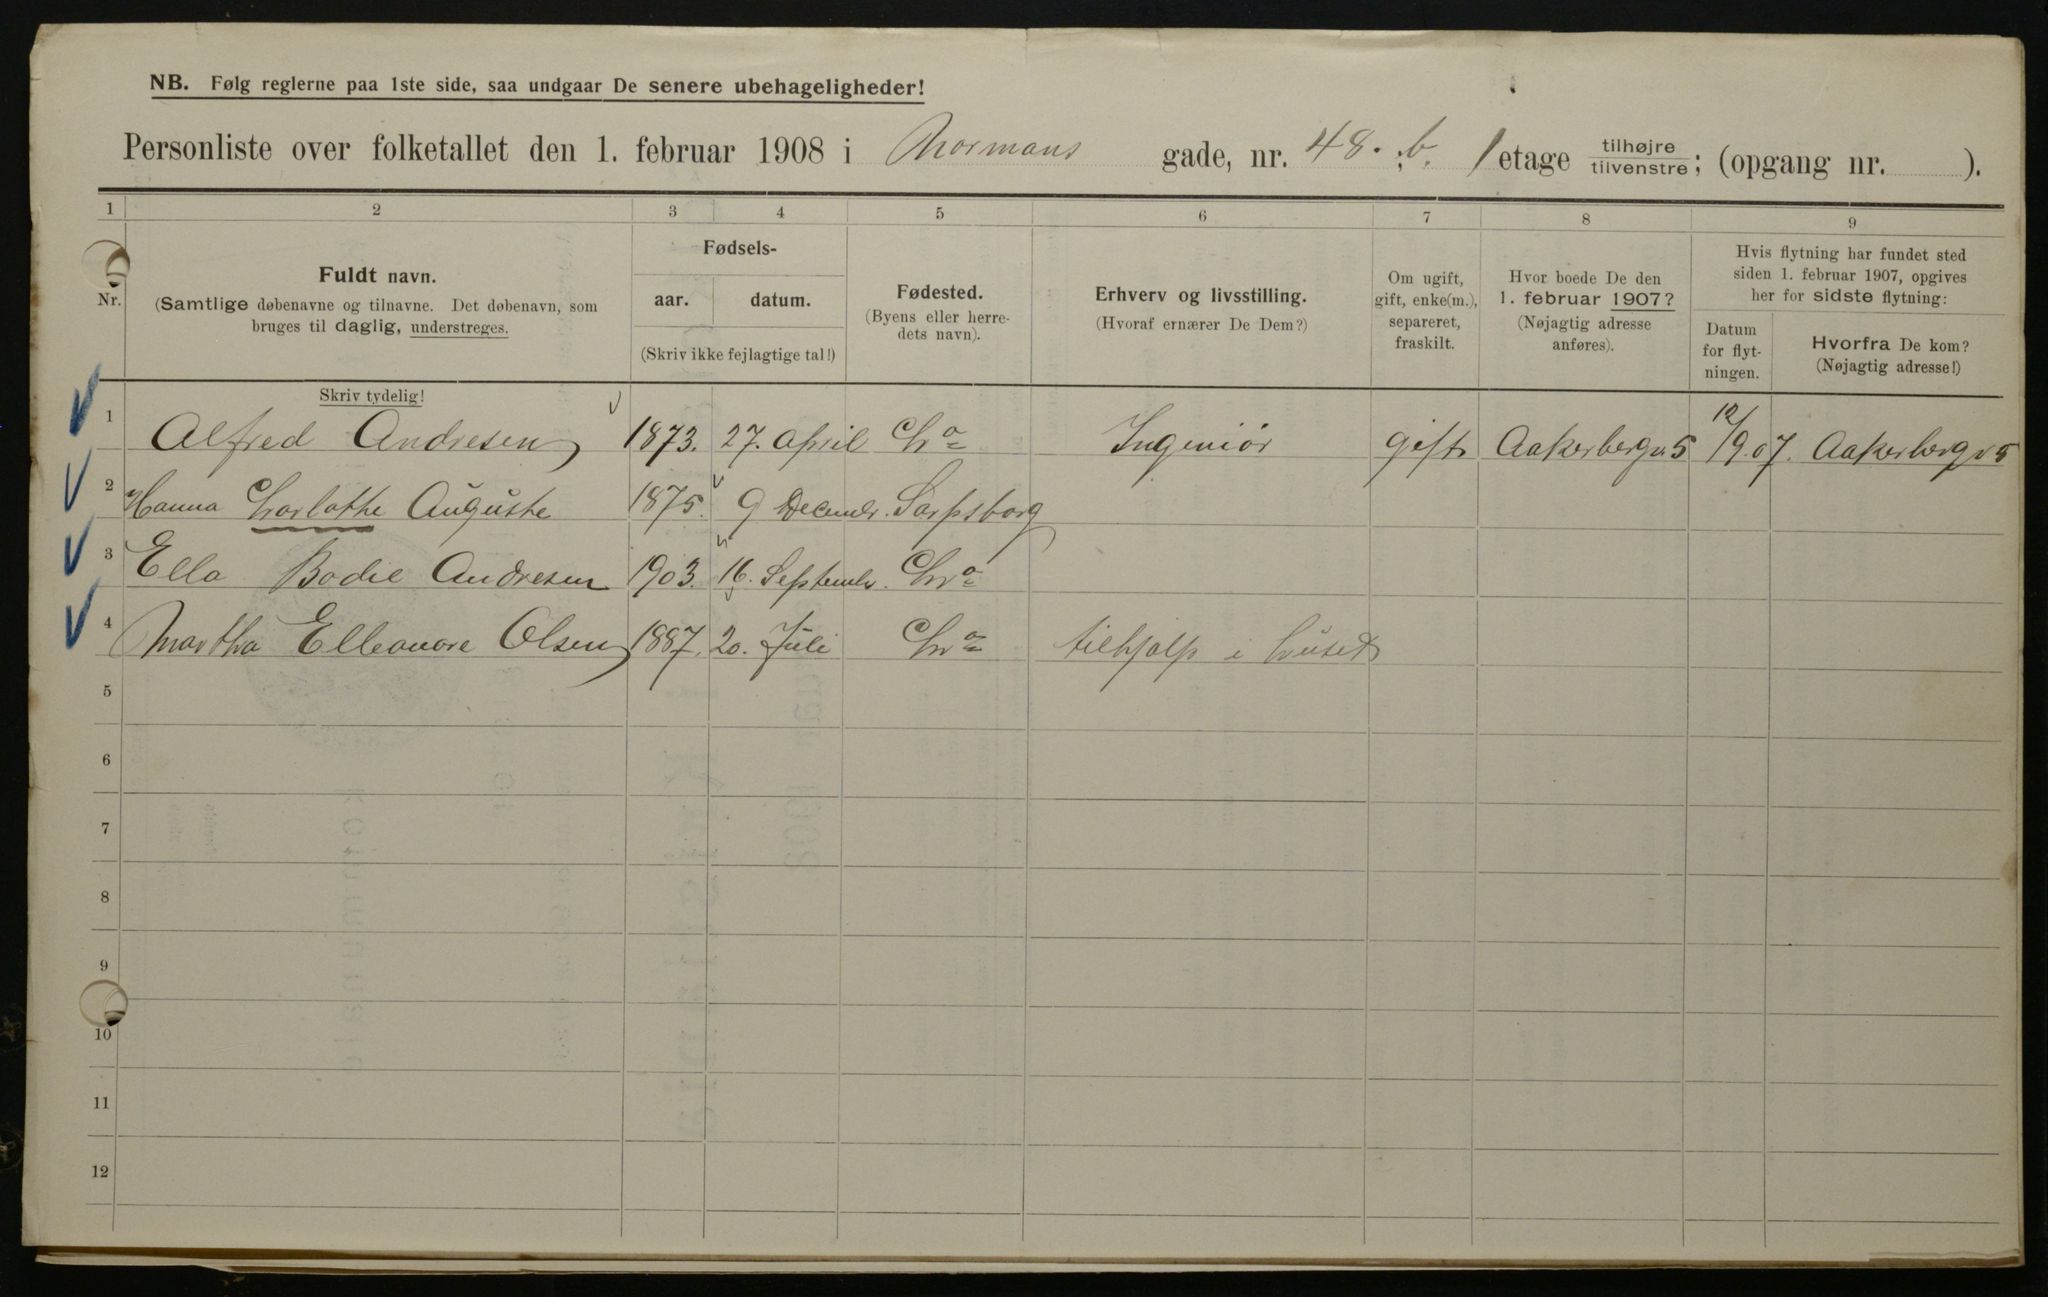 NB. Følg reglerne paa 1ste side, saa undgaar De senere ubehageligheder!
Personliste over folketallet den 1. februar 1908 i Normans gade, nr. 48. ; b. 1 etage tilhøjre / tilvenstre ; (opgang nr. ).
1 2 3 4 5 6 7 8 9
Nr.
Fuldt navn.
(Samtlige døbenavne og tilnavne. Det døbenavn, som
bruges til daglig, understreges.
Skriv tydelig!
Fødsels-
aar. datum.
(Skriv ikke fejlagtige tal!)
Fødested.
(Byens eller herre-
dets navn).
Erhverv og livsstilling.
(Hvoraf ernærer De Dem?)
Om ugift,
gift, enke(m.),
separeret,
fraskilt.
Hvor boede De den
1. februar 1907?
(Nøjagtig adresse
anføres).
Hvis flytning har fundet sted
siden 1. februar 1907, opgives
her for sidste flytning:
Datum
for flyt-
ningen.
Hvorfra De kom?
(Nøjagtig adresse!)
1 Alfred Andresen 1873. 27. April Chra Ingeniör gift Aakerbergv 5 12/9.07. Aakerbergv 5
2 Hanna Charlothe Auguste 1875. 9 Decembr. Sarpsborg
3 Ella Bodil Andresen 1903. 16. Septembr. Chra
4 Martha Elleonore Olsen 1887. 20. Juli Chra tilhjalp i huset
5
6
7
8
9
10
11
12